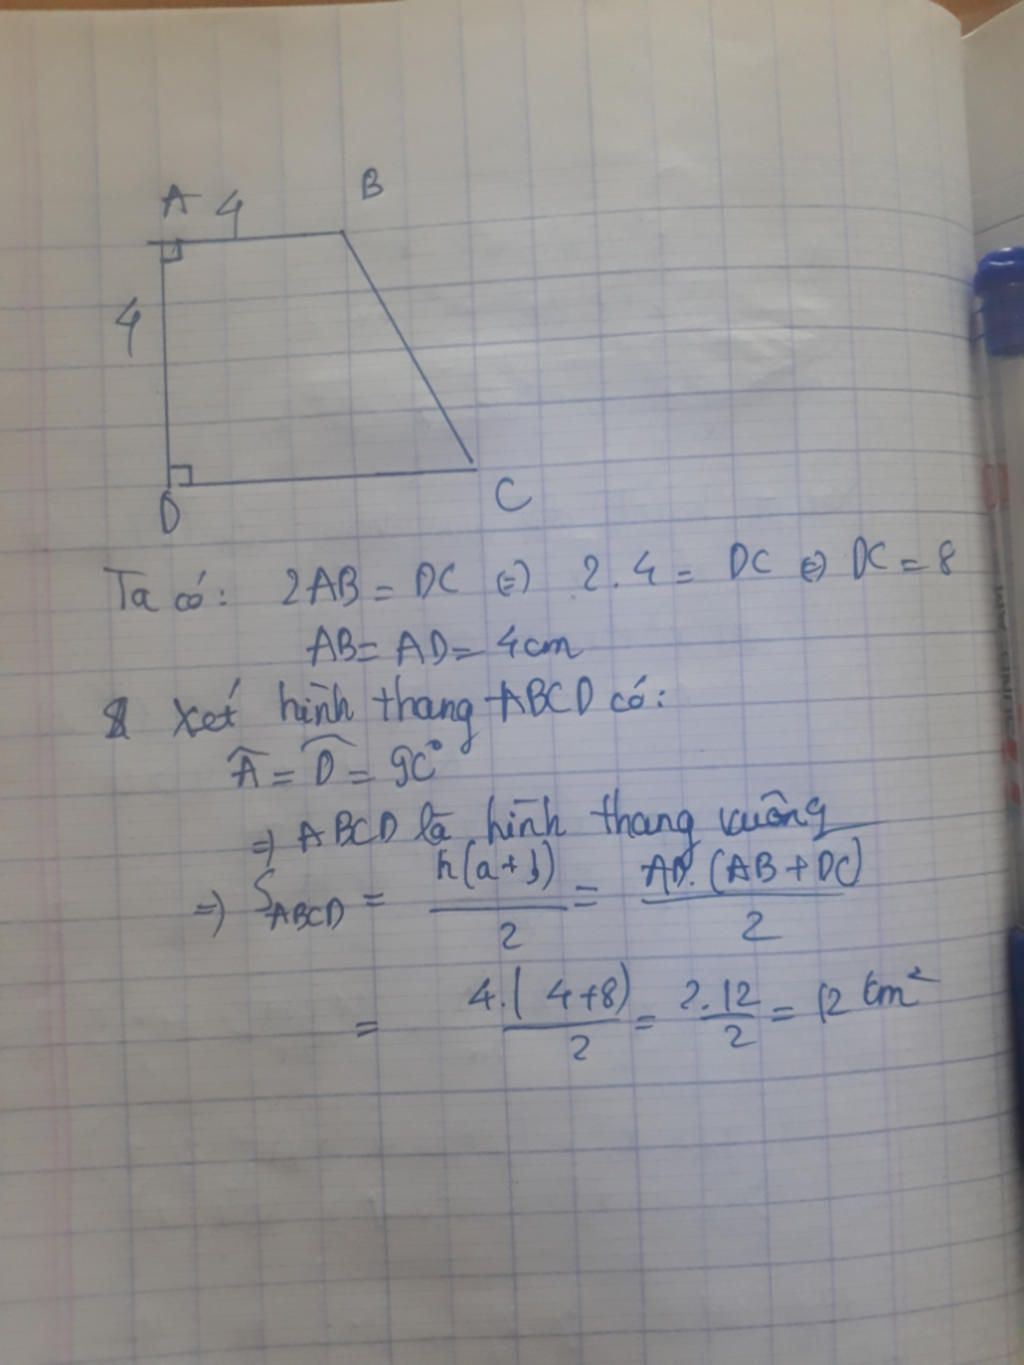 A 4 B
4
D C
Ta có: 2AB = DC (=) 2.4 = DC (=) DC = 8
AB = AD = 4cm
Xét hình thang ABCD có:
Â = D̂ = 90°
=) ABCD là hình thang vuông
=) S_ABCD = h(a+b)/2 = AD.(AB+DC)/2
= 4.(4+8)/2 = 2.12/2 = 12 cm²